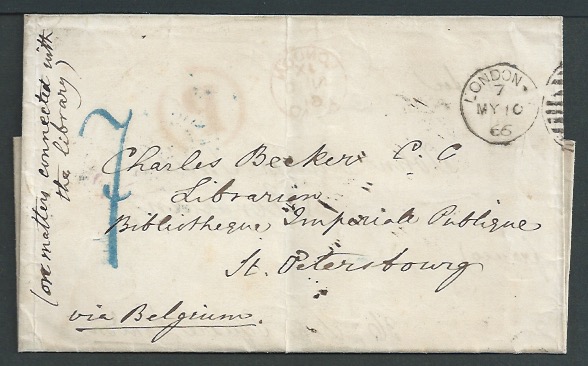 (on matters connected with
the library)
LONDON
7
MY 10
66
Charles Becker C. C
Librarian
Bibliotheque Imperiale Publique
St. Petersbourg
via Belgium.